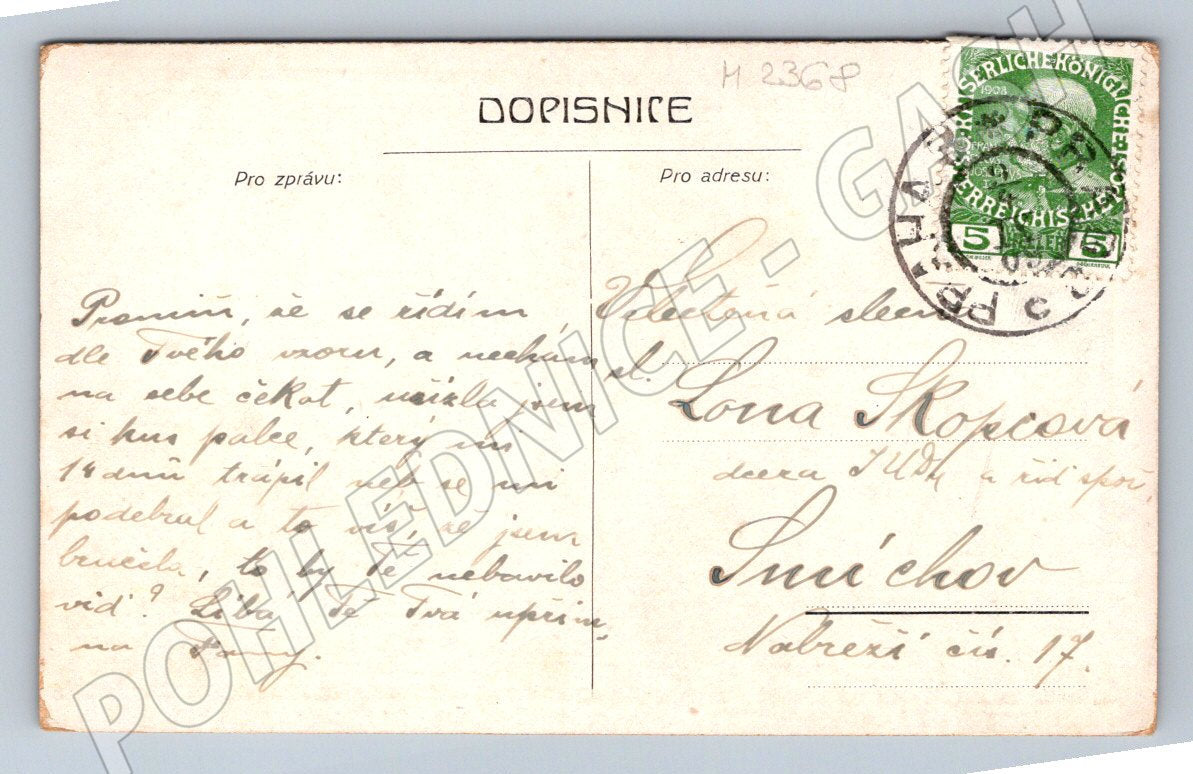 H 2368
DOPISNICE
Pro zprávu:
Pro adresu:
KAISERLICHE KÖNIGLICHE
ÖSTERREICHISCHE POST
1908
5 HELLER 5
PRAHA
Promiň, že se řídím
dle Tvého vzoru, a nechám
na sebe čekat, uřízla jsem
si kus palce, který mi
14 dnů trápil neb se mi
podebral a to víš, že jsem
bručela, to by Tě nebavilo
viď? Líbá Tě Tvá upřím-
na Fany.
Velectěná slečna
sl. Lona Skopcová
dcera JUDr a řid spoř.
Smíchov
Nábřeží čís. 17.
POHLEDNICE - GASH